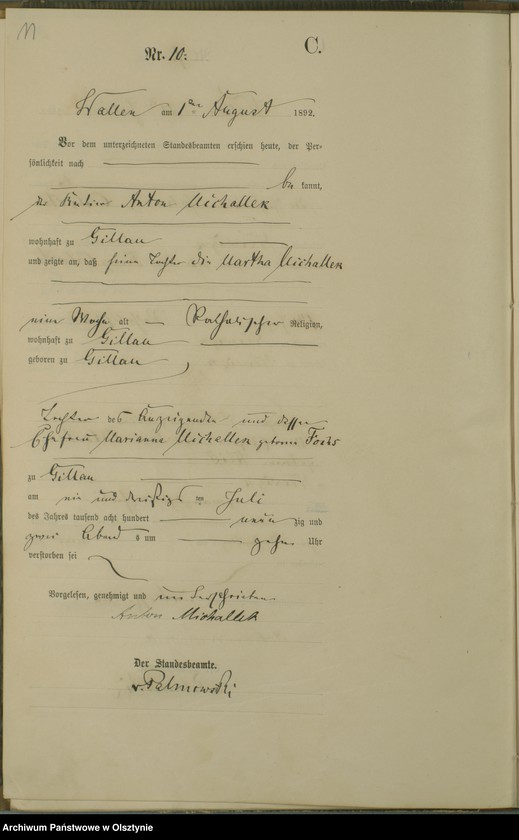 11
C.
Nr. 10.
Wallen am 1ten August 1892.
Vor dem unterzeichneten Standesbeamten erschien heute, der Per-
sönlichkeit nach
be kannt,
der Anton Michallek
wohnhaft zu Gillau
und zeigte an, daß seine Tochter die Martha Michallek
eine Woche alt Katholischer Religion,
wohnhaft zu Gillau
geboren zu Gillau
Tochter des Anzeigenden und dessen
Ehefrau Marianna Michallek geborne
zu Gillau
am ein und dreißigs ten Juli
des Jahres tausend acht hundert neun zig und
zwei Abend s um zehn Uhr
verstorben sei
Vorgelesen, genehmigt und unterschrieben
Anton Michallek
Der Standesbeamte.
v. Palmowski
Archiwum Państwowe w Olsztynie